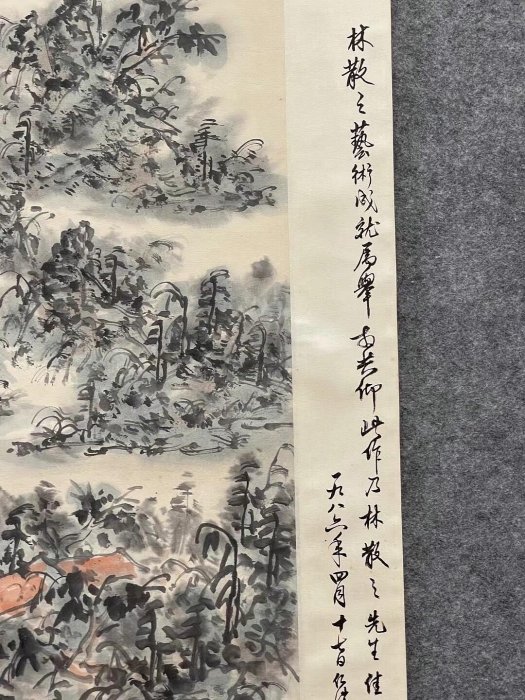 林散之藝術成就為舉世共仰此作乃林散之先生佳
一九八六年四月十七日